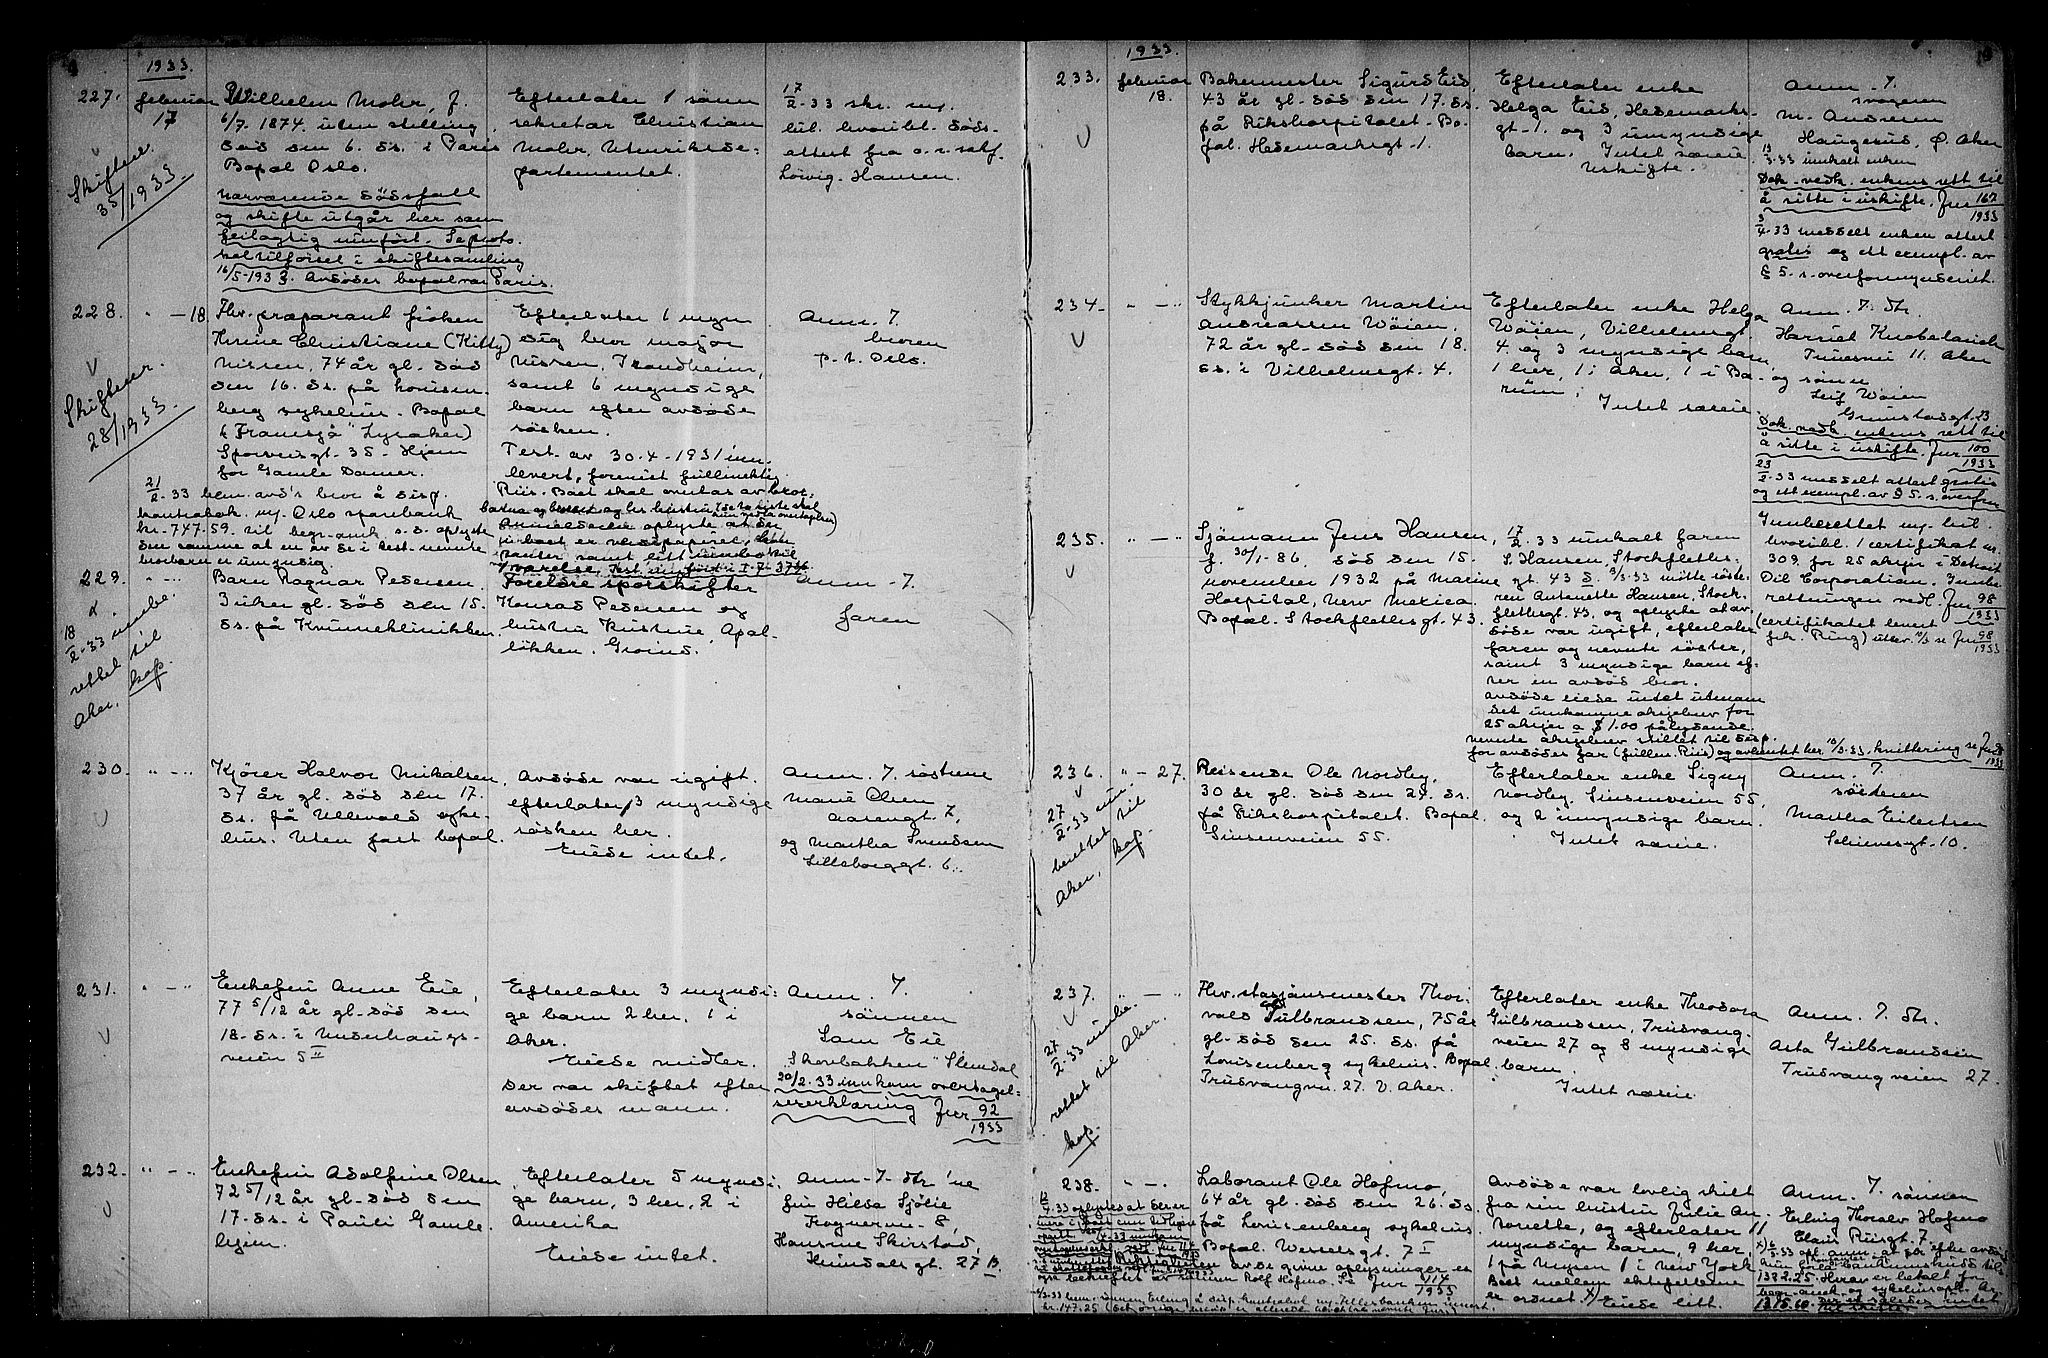 1933.
227.
februar
17
Wilhelm Mohr, f.
6/7. 1874. uten stilling,
död den 6. ds. i Paris
Bopæl Oslo.
Nærværende dödsfall
og skifte utgår her som
feilagtig innfört. Se proto-
koltilförsel i skiftesamling
16/5-1933. Avdödes bopæl var Paris.
Skifteser.
35/1933.
Efterlater 1 sönn
sekretær Christian
Mohr, Utenriksde-
partementet.
17/2-33 skr. m/
bil. hvoribl. döds-
attest fra o.r.sakf.
Lövig-Hansen.
228.
" - 18.
Fhv. præparant fröken
Christiane (Kitty)
Nissen, 74 år gl. död
den 16. ds. på Lovisen-
berg sykehus. Bopæl
("Fransjå" Lysaker)
Sporveisgt. 35 - Hjem
for Gamle Damer.
Skifteser.
28/1933.
21/2-33 hem. avd's bror å disp.
kontrabok m/ Oslo sparebank
kr. 747.59. til begr.omk.
Efterlater 1 myn
dig bror major
Nissen, Trondheim,
samt 6 myndige
barn efter avdöde
söcken.
Test. av 30.4-1931 inn-
levert, forenist fullmektig
Riis. Boet skal overtas av bror-
Anm. 7.
broren
p.t. Oslo.
229.
" - "
Barn Ragnar Pedersen
3 uker gl. död den 15.
ds. på Kvinneklinikken.
18/2-33 innbe-
rettet til
Aker. kop.
Foreldre sporskifter
Konrad Pedersen og
hustru Kristine, Apal-
lökken. Grorud.
Anm. 7.
faren
230.
" - "
Kjörer Halvor Mikalsen
37 år gl. död den 17.
ds. på Ullevål syke-
hus. Uten fast bopæl.
Avdöde var ugift.
efterlater 3 myndige
söcken her.
Eiede intet.
Anm. 7. söstrene
Marie Olsen
Aasengt. 7,
og Martha Svendsen
Lilleborggt. 6.
231.
" - "
Enkefru Anne Eie,
77 5/12 år gl. död den
18. ds. i Underhaugs-
veien 5 II
Efterlater 3 myndi-
ge barn 2 her, 1 i
Aker.
Eiede midler.
Der var skiftet efter
avdödes mann.
Anm. 7.
sönnen
Sam Eie
"Skovbakken" Slemdal
20/2.33 innkom overtagel-
seserklæring Jnr 92/1933
232.
" - "
Enkefru Adolfine Olsen
72 5/12 år gl. död den
17. ds. i Pauli Gamle-
hjem.
Efterlater 5 myndi-
ge barn, 3 her, 2 i
Amerika
Eiede intet.
Anm. 7. dtr'ne
fru Hilda Sjölie
Frognervn. 8,
Hansine Skirstad,
Kruudals gt. 27 B.
1933.
233.
februar
18.
Bakermester Sigurd Eid,
43 år gl. död den 17. ds.
på Rikshospitalet. Bo-
pæl. Hedemarksgt. 1.
Efterlater enke
Helga Eid, Hedemarks-
gt. 1. og 3 umyndige
barn. Intet særeie.
Uskifte.
Anm. 7.
svogeren
M. Andresen
Haugerud, Ö. Aker
13/3-33 innkalt enken
Dok. vedk. enkens rett til
å sitte i uskifte, Jnr 167/1933
3/4-33 meddelt enken attest
gratis og ett exempl. av
§ 5. s. overformynderiet.
234.
" - "
Stykkjunker Martin
Andreassen Wöien.
72 år gl. död den 18.
ds. i Vilhelmsgt. 4.
Efterlater enke Helga
Wöien, Vilhelmsgt.
4. og 3 myndige barn,
1 her, 1 i Aker, 1 i Bæ-
rum.
Intet særeie.
Anm. 7. dtr.
Harriet Knobelauch
Tuiesvei 11. Aker
og sönn
Leif Wöien
Grimstadgt. 23
Dok. vedk. enkens rett til
å sitte i uskifte. Jnr 100/1933
23/2-33 meddelt attest gratis
og ett exempl. av § 5. s. overfm.
235.
" - "
Sjömann Jens Hansen,
f. 30/1-86, död den 15.
november 1932 på Marine
Hospital, New Mexico.
Bopæl. Stockfletsgt. 43.
17/2.33 innkalt faren
S. Hansen, Stockflets-
gt. 43 d. 3/3.33 mötte söste-
ren Antonette Hansen, Stock-
fletsgt. 43, og oplyste at av-
döde var ugift, efterlater
faren og nevnte söster,
samt 3 myndige barn ef-
ter en avdöd bror.
Avdöde eiede intet utenom
det innkomne aktjebrev for
25 aktjer a $ 1.00 pålydende.
nevnte aktjebrev stillet til disp.
for avdödes far (fullm. Riis) og avhentet her 10/3.33. kvittering se Jnr 98/1933
Innberettet m/ bil.
hvoribl. 1 certifikat nr.
309. for 25 aktjer i Detroit
Oil Corporation. Innbe-
rettningen vedl. Jnr 98/1933
(certifikatet levert
frk. Ring) utlev. 10/3 se Jnr 98/1933
236.
" - 27.
Reisende Ole Nordby,
30 år gl. död den 27. ds.
på Rikshospitalet. Bopæl.
Sinsenveien 55.
27/2-33 inn-
berettet til
Aker, kop.
Efterlater enke Signy
Nordby, Sinsenveien 55,
og 2 umyndige barn.
Intet særeie.
Anm. 7.
sösteren
Martha Eilertsen
Schivesgt. 10.
237.
" - "
Fhv. stasjonsmester Thor-
vald Gulbrandsen, 75 år
gl. död den 25. ds. på
Lovisenberg sykehus. Bopæl.
Trudvangvn. 27. V. Aker.
27/2-33 innbe-
rettet til Aker.
kop.
Efterlater enke Theodora
Gulbrandsen, Trudvang-
veien 27 og 8 myndige
barn.
Intet særeie.
Anm. 7. dtr.
Asta Gulbrandsen
Trudvangveien 27.
238.
" - "
Laborant Ole Hofmo,
64 år gl. död den 26. ds.
på Lovisenberg sykehus.
Bopæl. Wesselsgt. 7 I
Avdöde var lovlig skilt
fra sin hustru Julie An-
tonette, og efterlater 11
myndige barn, 9 her,
1 på Mysen 1 i New York
Boet mellem ektefellene
er ordnet. x) Eiede litt.
Anm. 7. sönnen
Erling Thoralv Hofmo
Claus Riisgt. 7.
Se Jnr 114/1933